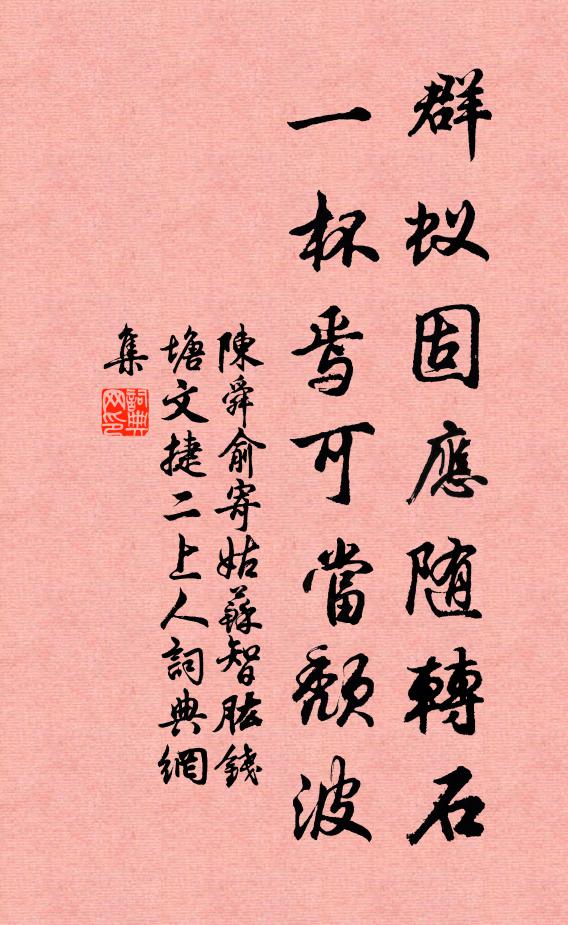 群蚁固應随轉石
一杯焉可當頹波
陳舜俞寄姑蘇智肱錢
塘文捷二上人詞典網
集
詞典網印